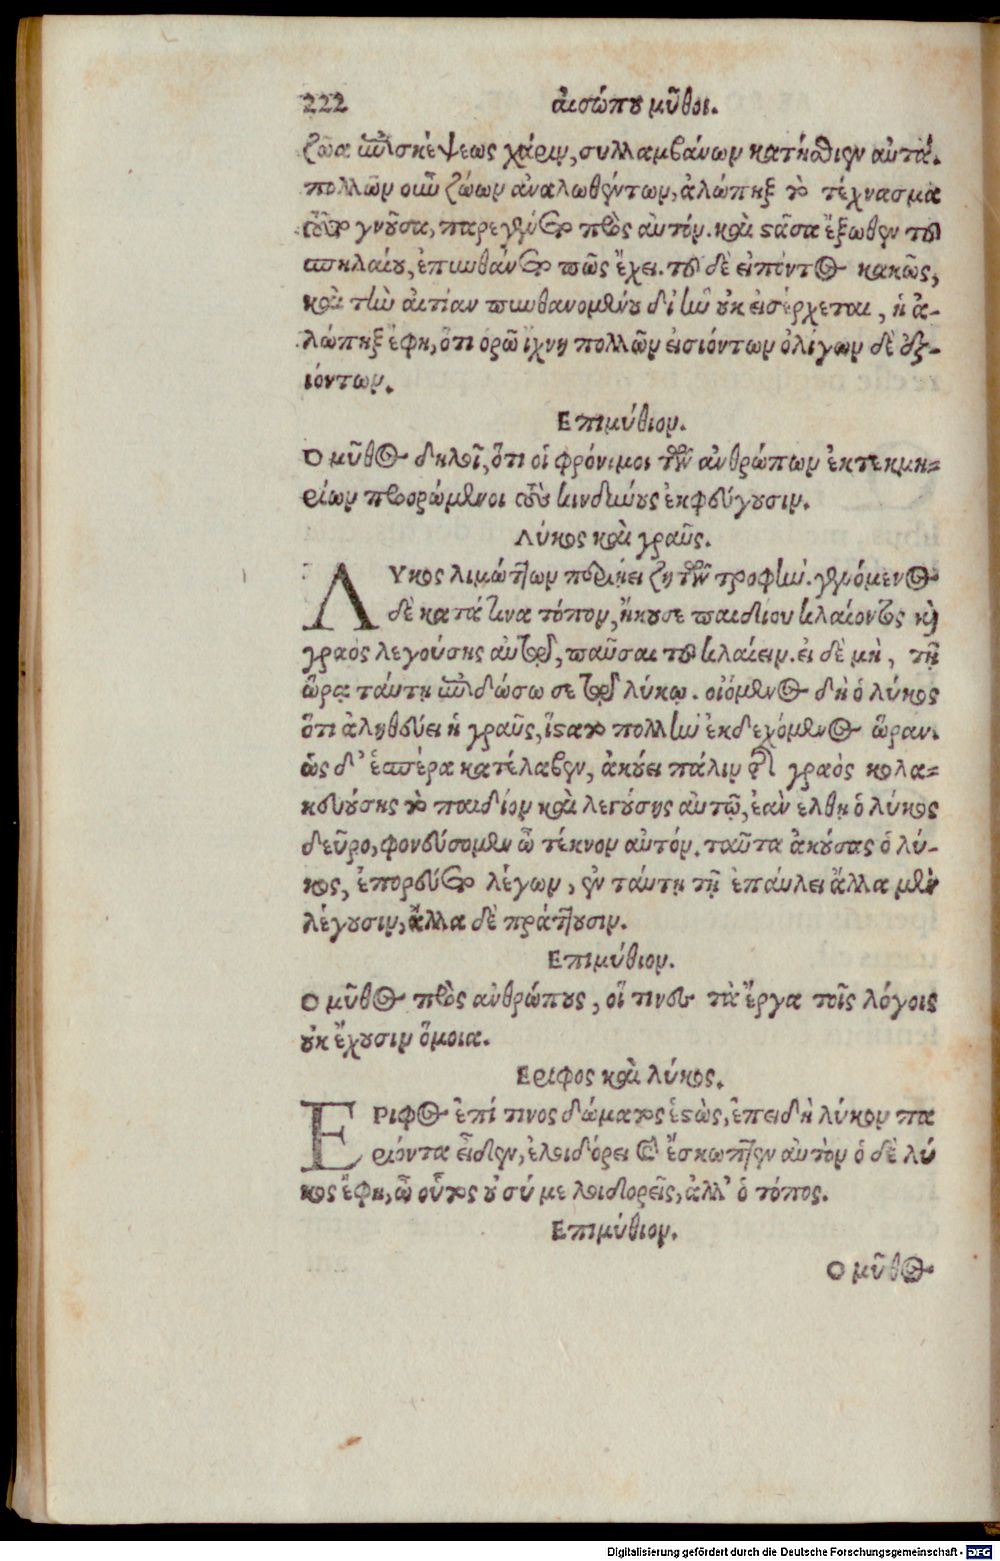 222 αἰσώπου μῦθοι.
ζῶα ἐπισκέψεως χάριν, συλλαμβάνων κατήσθιεν αὐτά.
πολλῶν οὖν ζώων ἀναλωθέντων, ἀλώπηξ τὸ τέχνασμα
τοῦτο γνοῦσα, παρεγένετο πρὸς αὐτόν. καὶ στᾶσα ἔξωθεν τοῦ
σπηλαίου, ἐπυνθάνετο πῶς ἔχει. τοῦ δὲ εἰπόντος κακῶς,
καὶ τὴν αἰτίαν πυνθανομένου δι' ἣν οὐκ εἰσέρχεται, ἡ ἀ-
λώπηξ ἔφη, ὅτι ὁρῶ ἴχνη πολλῶν εἰσιόντων ὀλίγων δὲ ἐξ-
ιόντων.
Επιμύθιον.
Ο μῦθος δηλοῖ, ὅτι οἱ φρόνιμοι τῶν ἀνθρώπων ἐκ τεκμη-
ρίων προορώμενοι τοὺς κινδύνους ἐκφεύγουσιν.
Λύκος καὶ γραῦς.
ΛΥκος λιμώττων περιήει ζητῶν τροφήν. γενόμενος
δὲ κατά τινα τόπον, ἤκουσε παιδίου κλαίοντος καὶ
γραὸς λεγούσης αὐτῷ, παῦσαι τοῦ κλαίειν. εἰ δὲ μὴ, τῇ
ὥρᾳ ταύτῃ ἐπιδώσω σε τῷ λύκῳ. οἰόμενος δὴ ὁ λύκος
ὅτι ἀληθεύει ἡ γραῦς, ἵστατο πολλὴν ἐκδεχόμενος ὥραν.
ὡς δ' ἑσπέρα κατέλαβεν, ἀκούει πάλιν τῆς γραὸς κολα-
κευούσης τὸ παιδίον καὶ λεγούσης αὐτῷ, ἐὰν ἔλθῃ ὁ λύκος
δεῦρο, φονεύσομεν ὦ τέκνον αὐτόν. ταῦτα ἀκούσας ὁ λύ-
κος, ἐπορεύετο λέγων, ἐν ταύτῃ τῇ ἐπαύλει ἄλλα μὲν
λέγουσιν, ἄλλα δὲ πράττουσιν.
Επιμύθιον.
Ο μῦθος πρὸς ἀνθρώπους, οἵ τινες τὰ ἔργα τοῖς λόγοις
οὐκ ἔχουσιν ὅμοια.
Εριφος καὶ λύκος.
ΕΡΙΦος ἐπί τινος δώματος ἑστὼς, ἐπειδὴ λύκον πα
ριόντα εἶδεν, ἐλοιδόρει καὶ ἔσκωπτεν αὐτὸν ὁ δὲ λύ
κος ἔφη, ὦ οὗτος οὐ σύ με λοιδορεῖς, ἀλλ' ὁ τόπος.
Επιμύθιον.
Ο μῦθος
Digitalisierung gefördert durch die Deutsche Forschungsgemeinschaft - DFG